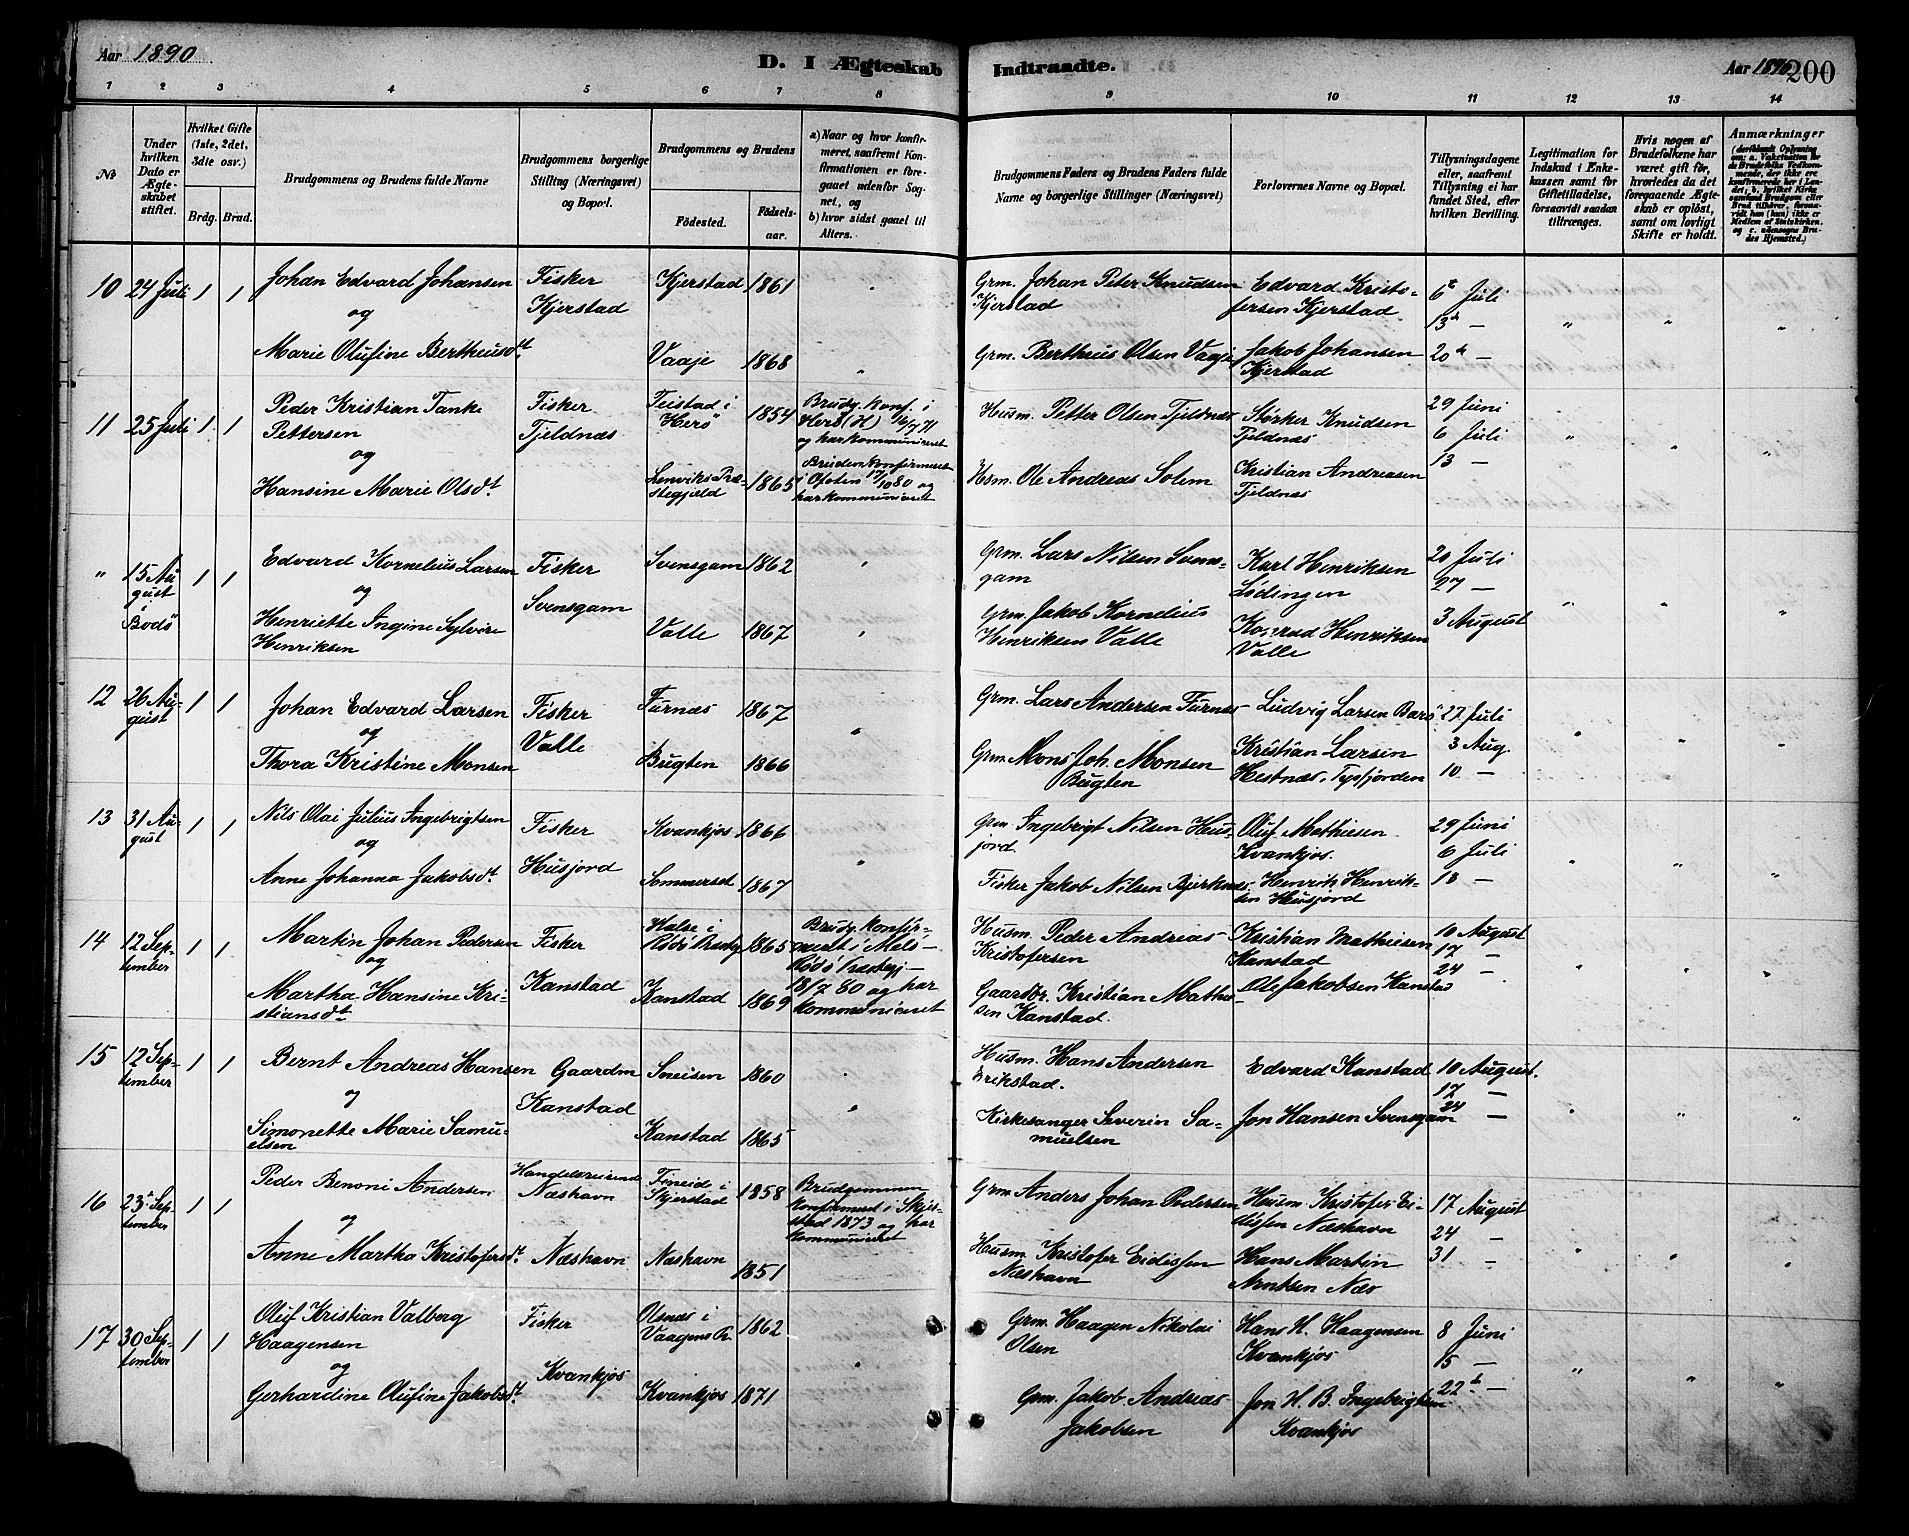 Aar 1890
D. I Ægteskab Indtraadte.
Aar 1890
200
1 2 3 4 5 6 7 8 9 10 11 12 13 14
No
Under hvilken Dato er Ægteskabet stiftet.
Hvilket Gifte (1ste, 2det, 3die osv.)
Brdg. Brud.
Brudgommens og Brudens fulde Navne
Brudgommens borgerlige Stilling (Næringsvei) og Bopæl.
Brudgommens og Brudens
Fødested.
Fødselsaar.
a) Naar og hvor konfirmeret, saafremt Konfirmationen er foregaaet udenfor Sognet, og
b) hvor sidst gaaet til Alters.
Brudgommens Faders og Brudens Faders fulde Navne og borgerlige Stillinger (Næringsvei)
Forlovernes Navne og Bopæl.
Tillysningsdagene eller, saafremt Tillysning ei har fundet Sted, efter hvilken Bevilling.
Legitimation for Indskud i Enkekassen samt for Giftetilladelse, forsaavidt saadan tiltrænges.
Hvis nogen af Brudefolkene har været gift før, hvorledes da det foregaaende Ægteskab er opløst, samt om lovligt Skifte er holdt.
Anmærkninger
10 24 Juli 1 1 Johan Edvard Johansen
og
Marie Olufine Bertheusdt
Fisker
Kjerstad
Kjerstad 1861
Vaaje 1868
Grm. Johan Peter Knudsen
Kjerstad
Grm. Bertheus Olsen Vaaje
Edvard Kristofersen Kjerstad
Jakob Johansen
Kjerstad
6te Juli
13de —
20de —
11 25 Juli 1 1 Peder Kristian Tanke
Pettersen
og
Hansine Marie Olsdt
Fisker
Tjeldnæs
Teistad i
Herö 1854
Lenviks Præstegjeld 1865
Brudg. konf. i
Herö (H)
og har kommuniceret
Bruden konfirmeret
i Ofoten 17/10 80 og
har kommuniceret
Husm. Petter Olsen Tjeldnæs
Hsm. Ole Andreas Solem
Störker Knudsen
Tjeldnæs
Kristian Andreasen
Tjeldnæs
29 Juni
6 Juli
13 —
" 15 August
i
Bodö 1 1
Edvard Kornelius Larsen
og
Henriette Ingine Sylvire
Henriksen
Fisker
Svensgam
Svensgam 1862
Valle 1867
Grm. Lars Nilsen Svensgam
Grm. Jakob Kornelius
Henriksen Valle
Karl Henriksen
Lödingen
Konrad Henriksen
Valle
20 Juli
27 —
3 August
12 26 August 1 1 Johan Edvard Larsen
og
Thora Kristine Monsen
Fisker
Valle
Furnæs 1867
Bugten 1866
Grm. Lars Andersen Furnæs
Grm. Mons Joh. Monsen
Bugten
Ludvig Larsen Barö
Kristian Larsen
Hestnæs, Tysfjorden
27 Juli
3 Aug.
10 —
13 31 August 1 1 Nils Olai Julius Ingebrigtsen
og
Anne Johanna Jakobsdt
Fisker
Husjord
Kvankjos 1866
Sommerset 1867
Grm. Ingebrigt Nilsen Husjord.
Fisker Jakob Nilsen Bjerknæs
Oluf Mathiesen
Kvankjos.
Henrik Henriksen Husjord
29 Juni
6 Juli
13 —
14 12 September 1 1 Martin Johan Pedersen
og
Martha Hansine Kristiansdt
Fisker
Kanstad
Halse i
1865
Kanstad 1869
Brudg. konfirmeret i Melö
Rödö Præstegj
18/7 80 og har
kommuniceret
Husm. Peder Andreas
Kristofersen
Gaardbr. Kristian Mathiesen Kanstad.
Kristian Mathiesen
Kanstad
Ole Jakobsen Kanstad
10 August
17 —
24 —
15 12 September 1 1 Bernt Andreas Hansen
og
Simonette Marie Samuelsen
Gaardm
Kanstad
Sneisen 1860
Kanstad 1865
Husm. Hans Andersen
Erikstad.
Kirkesanger Severin Samuelsen
Edvard Kanstad
Jon Hansen Svensgam
10 August.
17 —
24 —
16 23de September 1 1 Peder Benoni Andersen
og
Anne Martha Kristofersdt
Handelsreisende
Næshavn
Næshavn
Fineide i
Skjerstad 1858
Næshavn 1851
Brudgommen
konfirmeret i Skjerstad 1873 og har
kommuniceret
Grm Anders Johan Pedersen
Husm. Kristofer Eidissen
Næshavn
Husm Kristofer Eidissen Næshavn
Hans Martin
Arntsen Næs
17 August
24 —
31 —
17 30 September 1 1 Oluf Kristian Valberg
Haagensen
og
Gerhardine Olufine Jakobsdt
Fisker
Kvankjos
Olsnæs i
Vaagens Pr. 1862
Kvankjos 1871
Grm. Haagen Nikolai
Olsen
Grm. Jakob Andreas
Jakobsen
Hans H. Haagensen
Kvankjos
Jon H. B. Ingebrigtsen
Kvankjos
8 Juni
15 —
22de —